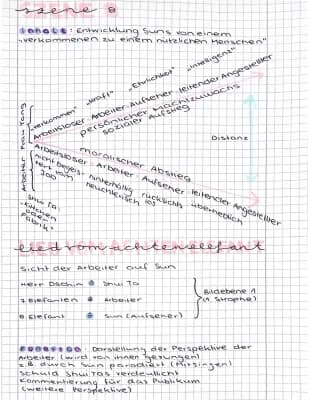 Szene 8
Inhalt: Entwicklung Suns von einem
"verkommenen zu einem nützlichen Menschen"
"verkommen" "Kraft" "Ehrlichkeit" "Intelligenz"
Arbeitsloser Arbeiter Aufseher leitender Angestellter
persönlicher Machtzuwachs
sozialer Aufstieg
Frau Yang
Distanz
moralischer Abstieg
Arbeitsloser Arbeiter Aufseher leitender Angestellter
nicht begeis- hinterhältig rücksichts- überheblich
tert vom heuchlerisch los
Job
Arbeiter
Shui Ta:
Lied vom achten Elefant
Sicht der Arbeiter auf Sun
Herr Dschin Shui Ta
7 Elefanten Arbeiter
8. Elefant Sun (Aufseher)
Bildebene 1
(1. Strophe)
Funktion: Darstellung der Perspektive der
Arbeiter (wird von ihnen gesungen)
z.B. durch Sun parodiert (Mitsingen)
Schuld Shui Tas verdeutlicht
Kommentierung für das Publikum
(weitere Perspektive)